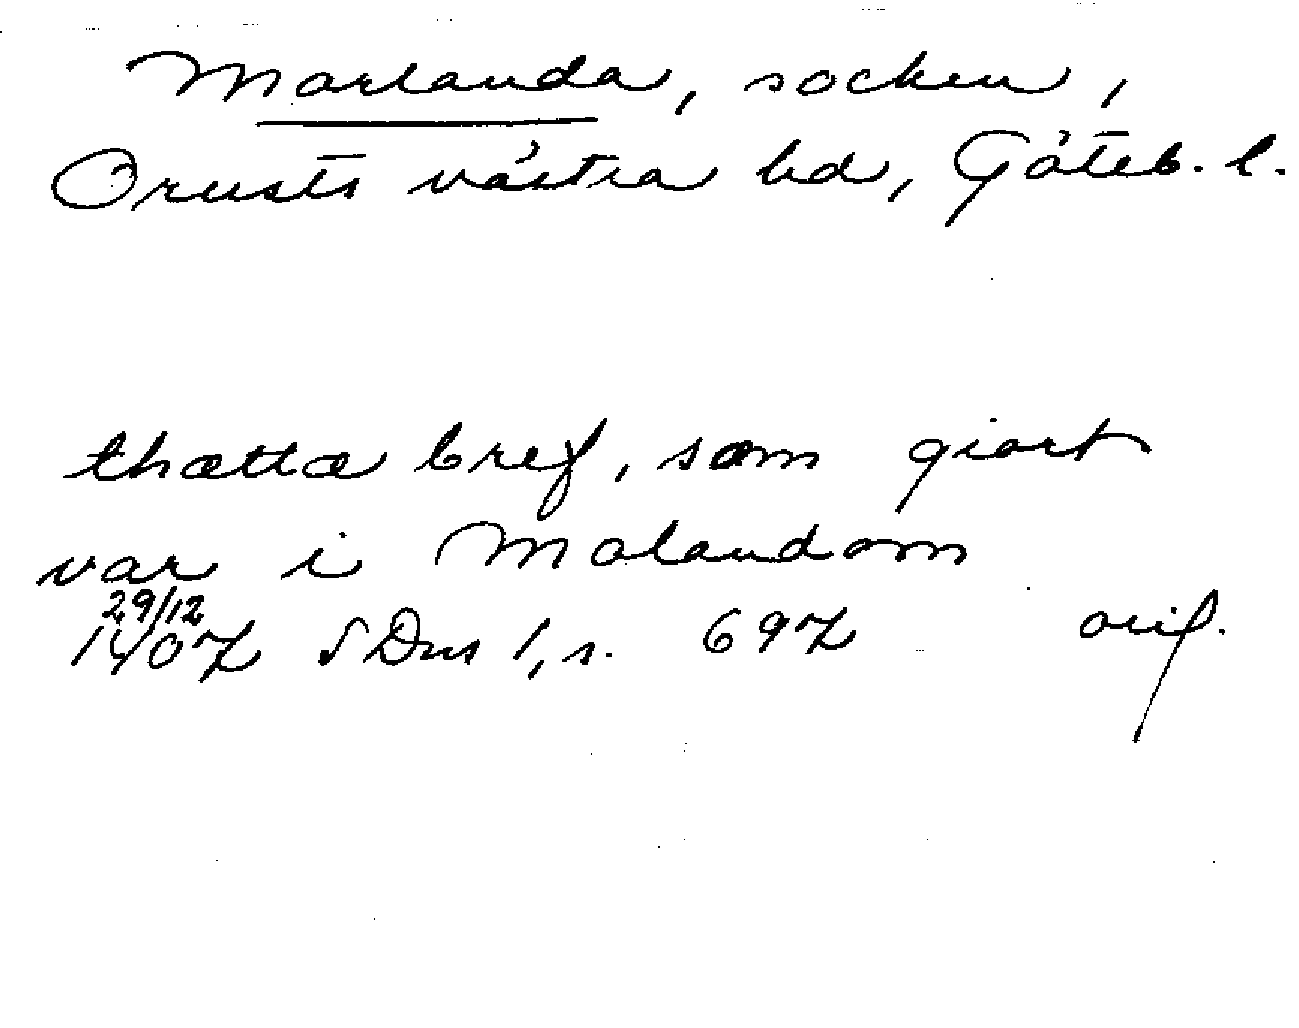 Morlanda, socken,
Orusts västra hd, Göteb. l.
thættæ bref, som giort
var i Molandom
29/12
1407 SDns 1, s. 697 orig.